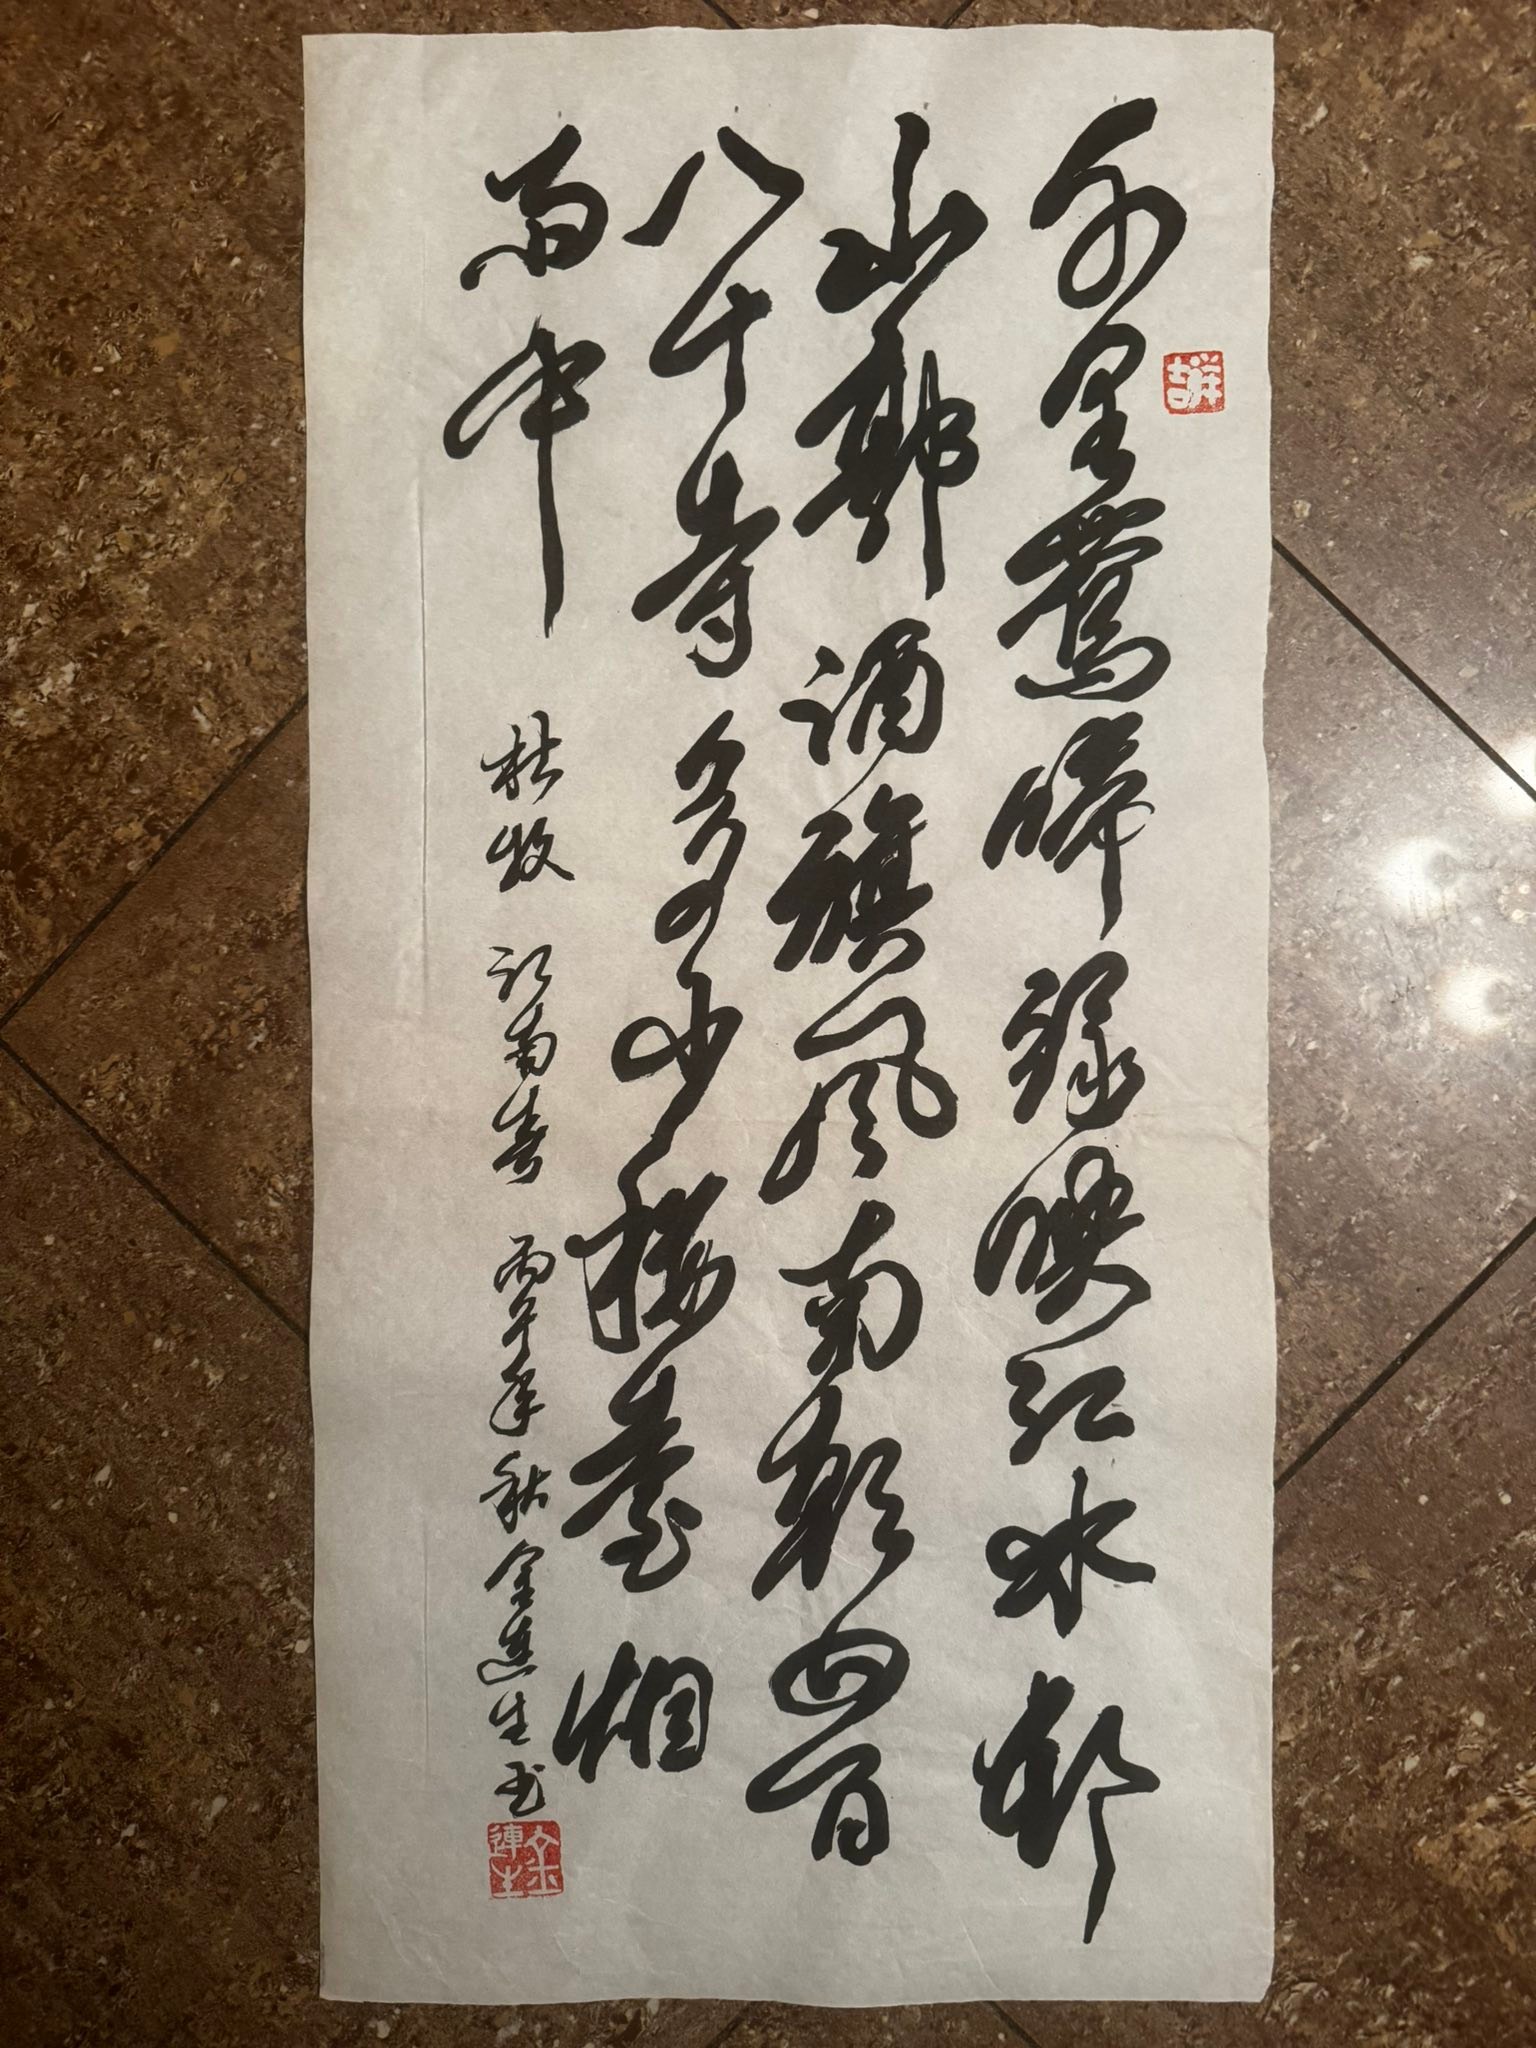 千里鶯啼綠映紅水邨
山郭酒旗風南朝四百
八十寺多少樓臺烟
雨中
杜牧 江南春 丙午年秋 金連生书
金連生